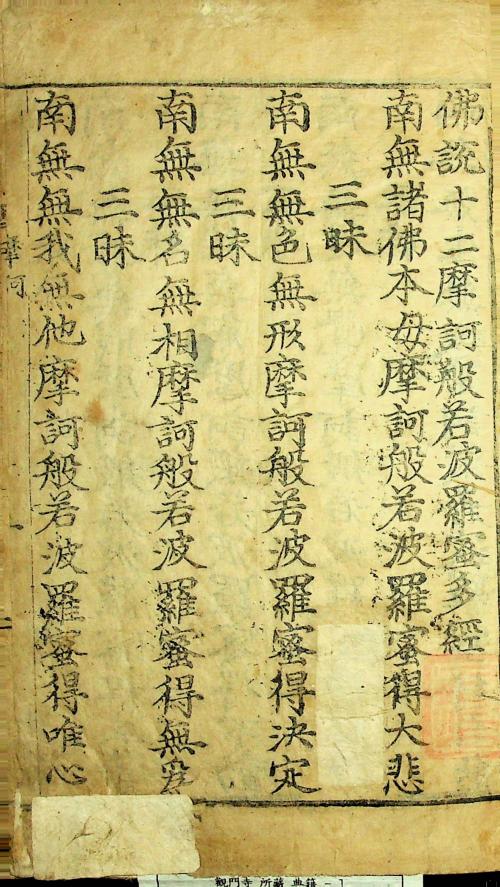 佛説十二摩訶般若波羅蜜多經
南無諸佛本母摩訶般若波羅蜜得大悲
三昧
南無無色無形摩訶般若波羅蜜得決定
三昧
南無無名無相摩訶般若波羅蜜得無
三昧
南無無我無他摩訶般若波羅蜜得唯心
摩訶
一
觀門寺 所藏 典籍 - 1